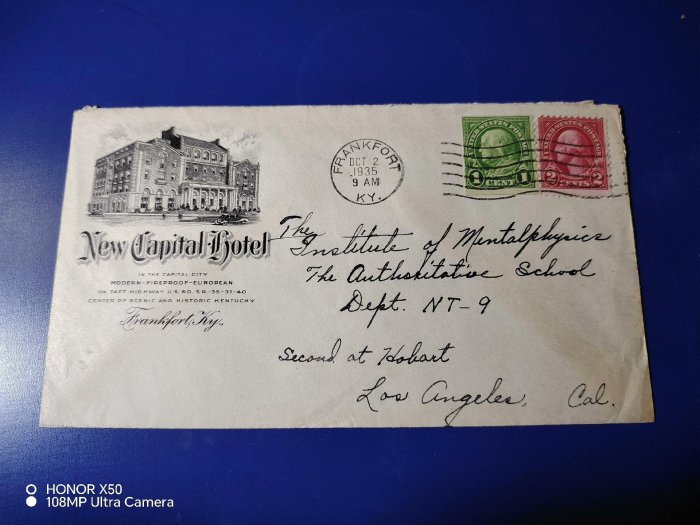 New Capital Hotel
IN THE CAPITAL CITY
MODERN-FIREPROOF-EUROPEAN
ON TAFT HIGHWAY, U.S. 60, S.R.-35-37-40
CENTER OF SCENIC AND HISTORIC KENTUCKY
Frankfort, Ky.
FRANKFORT
OCT 2
1935
9 AM
KY.
UNITED STATES POSTAGE
1 CENT 1
UNITED STATES POSTAGE
2 CENTS 2
The
Institute of Mentalphysics
The Authoritative School
Dept. NT-9
Second at Hobart
Los Angeles, Cal.
HONOR X50
108MP Ultra Camera